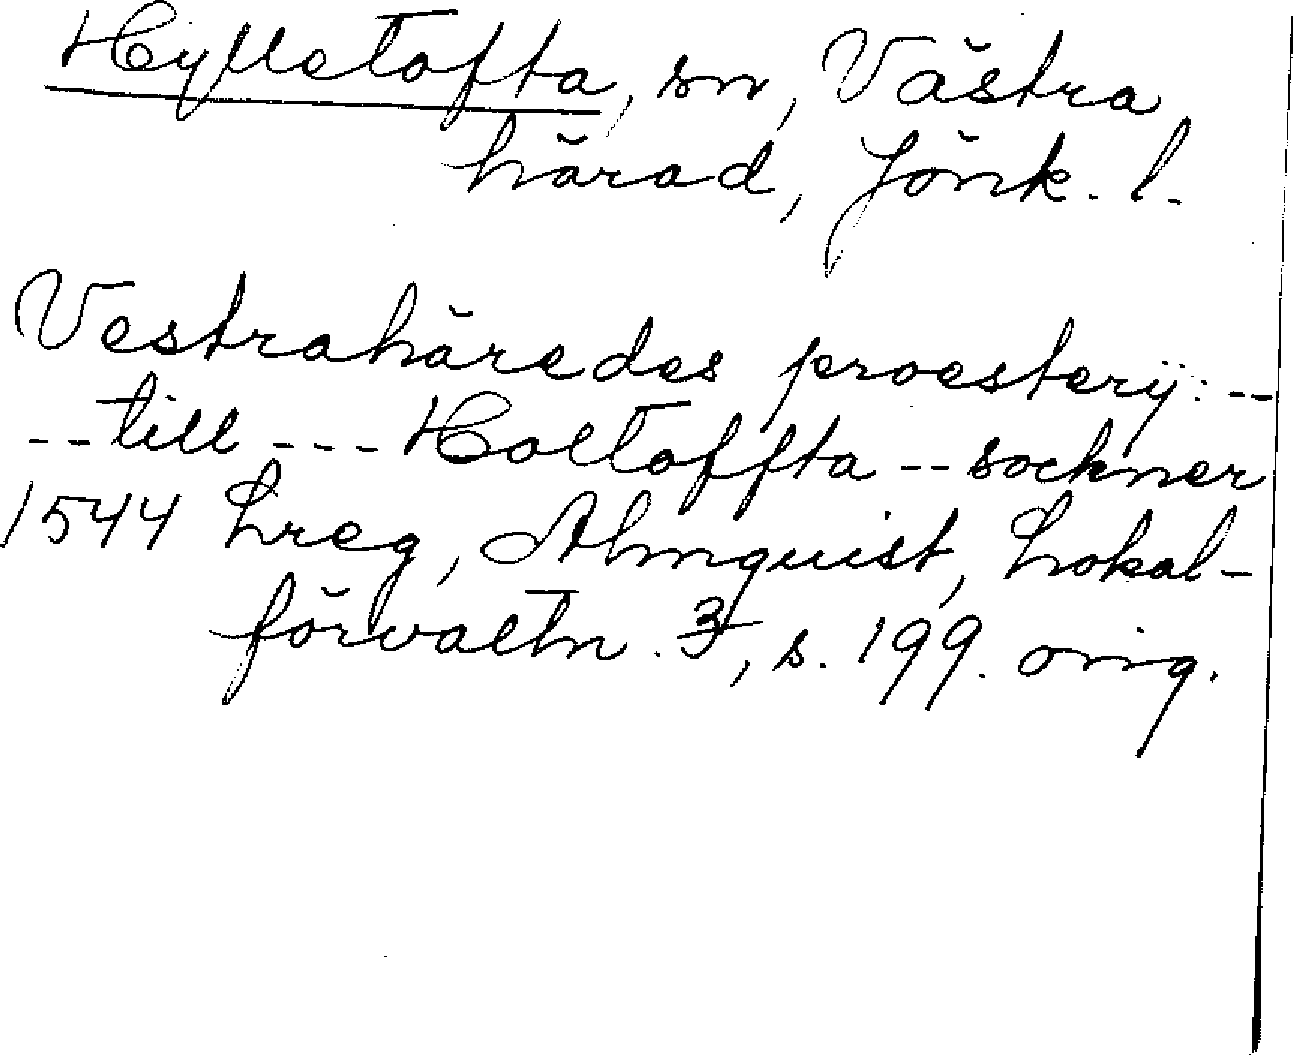 Hylletofta, sn, Västra
härad, Jönk. l.
Vestrahäredes proesterij: --
-- till --- Holtoffta -- sockner
1544 Lreg, Almquist, Lokal-
förvaltn. 3, s. 199. orig.